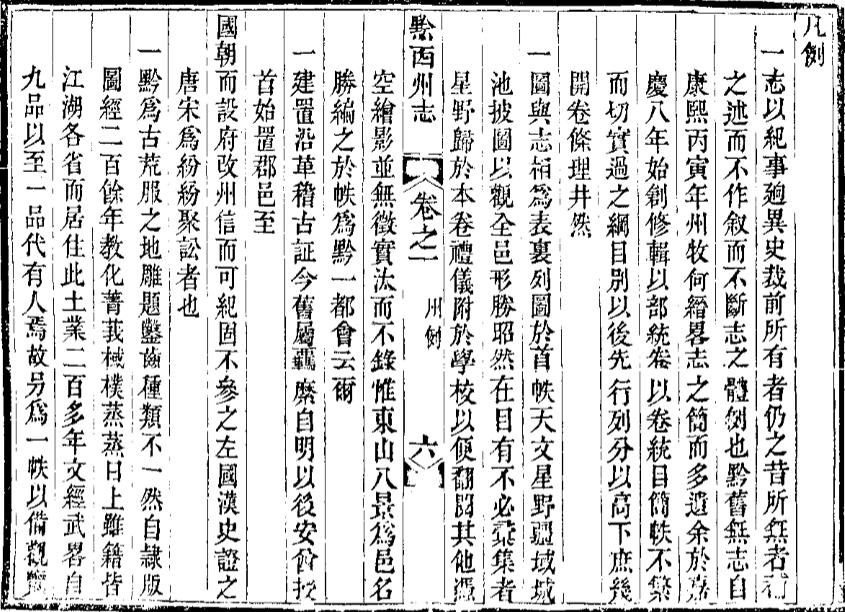 凡例
一志以紀事廼異史裁前所有者仍之昔所無者補
之述而不作叙而不斷志之體例也黔舊無志自
康熙丙寅年州牧何縉畧志之簡而多遺余於嘉
慶八年始創修輯以部統卷以卷統目簡帙不繁
而切實過之綱目別以後先行列分以高下庶幾
開卷條理井然
一圖與志相為表裏列圖於首帙天文星野疆域城
池披圖以觀全邑形勝昭然在目有不必彙集者
星野歸於本卷禮儀附於學校以便翻閱其他憑
黔西州志 卷之一 凡例 六
空繪影並無徵實汰而不錄惟東山八景為邑名
勝編之於帙為黔一都會云爾
一建置沿革稽古証今舊屬羈縻自明以後安酋投
首始置郡邑至
國朝而設府改州信而可紀固不參之左國漢史證之
唐宋為紛紛聚訟者也
一黔為古荒服之地雕題鑿齒種類不一然自隸版
圖經二百餘年教化菁莪棫樸蒸蒸日上雖籍皆
江湖各省而居住此土業二百多年文經武畧自
九品以至一品代有人焉故另為一帙以備觀